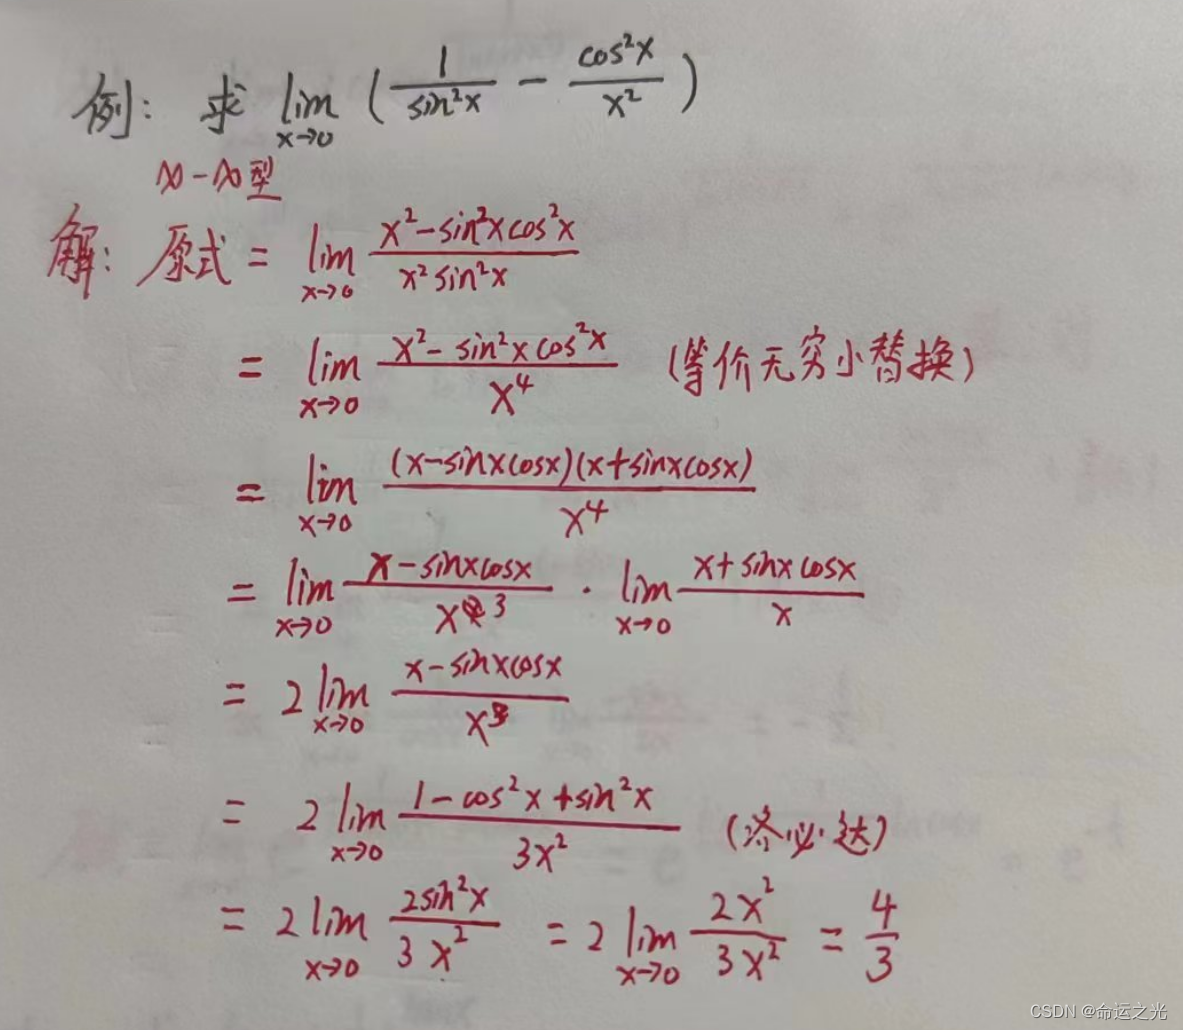 例: 求 lim x→0 ( 1/sin²x − cos²x/x² )
∞-∞型
解: 原式 = lim x→0 (x²−sin²xcos²x)/(x² sin²x)
= lim x→0 (x²−sin²xcos²x)/x⁴ (等价无穷小替换)
= lim x→0 (x−sinxcosx)(x+sinxcosx)/x⁴
= lim x→0 (x−sinxcosx)/x³ · lim x→0 (x+sinxcosx)/x
= 2 lim x→0 (x−sinxcosx)/x³
= 2 lim x→0 (1−cos²x+sin²x)/3x² (洛必达)
= 2 lim x→0 2sin²x/3x² = 2 lim x→0 2x²/3x² = 4/3
CSDN @命运之光